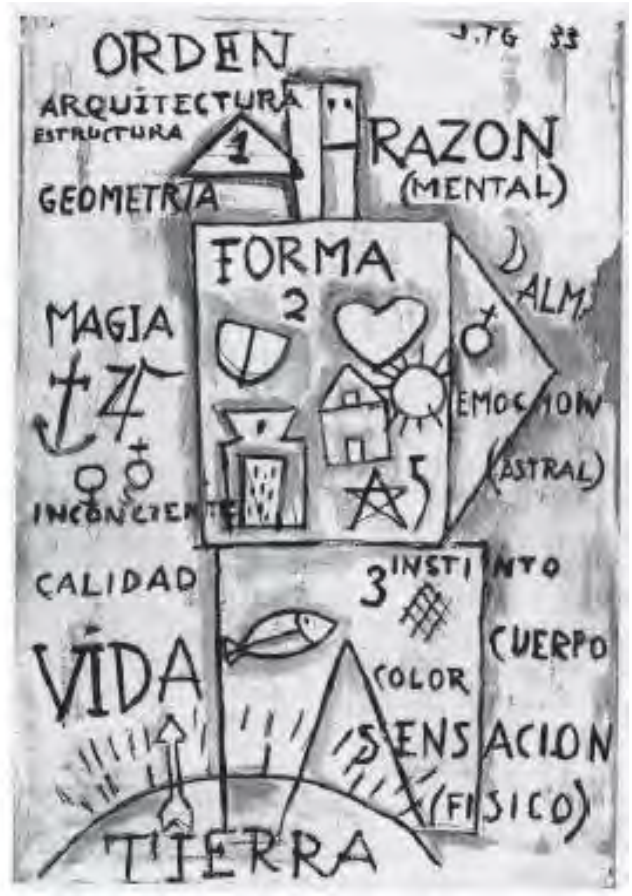 ORDEN
J.TG 33
ARQUÍTECTURA
ESTRUCTURA
1
RAZON
(MENTAL)
GEOMETRIA
FORMA
2
ALM
MAGIA
EMOCION
(ASTRAL)
5
INCONCIENTE
CALIDAD
3
INSTINTO
CUERPO
VÍDA
COLOR
SENSACION
(FISICO)
TIERRA